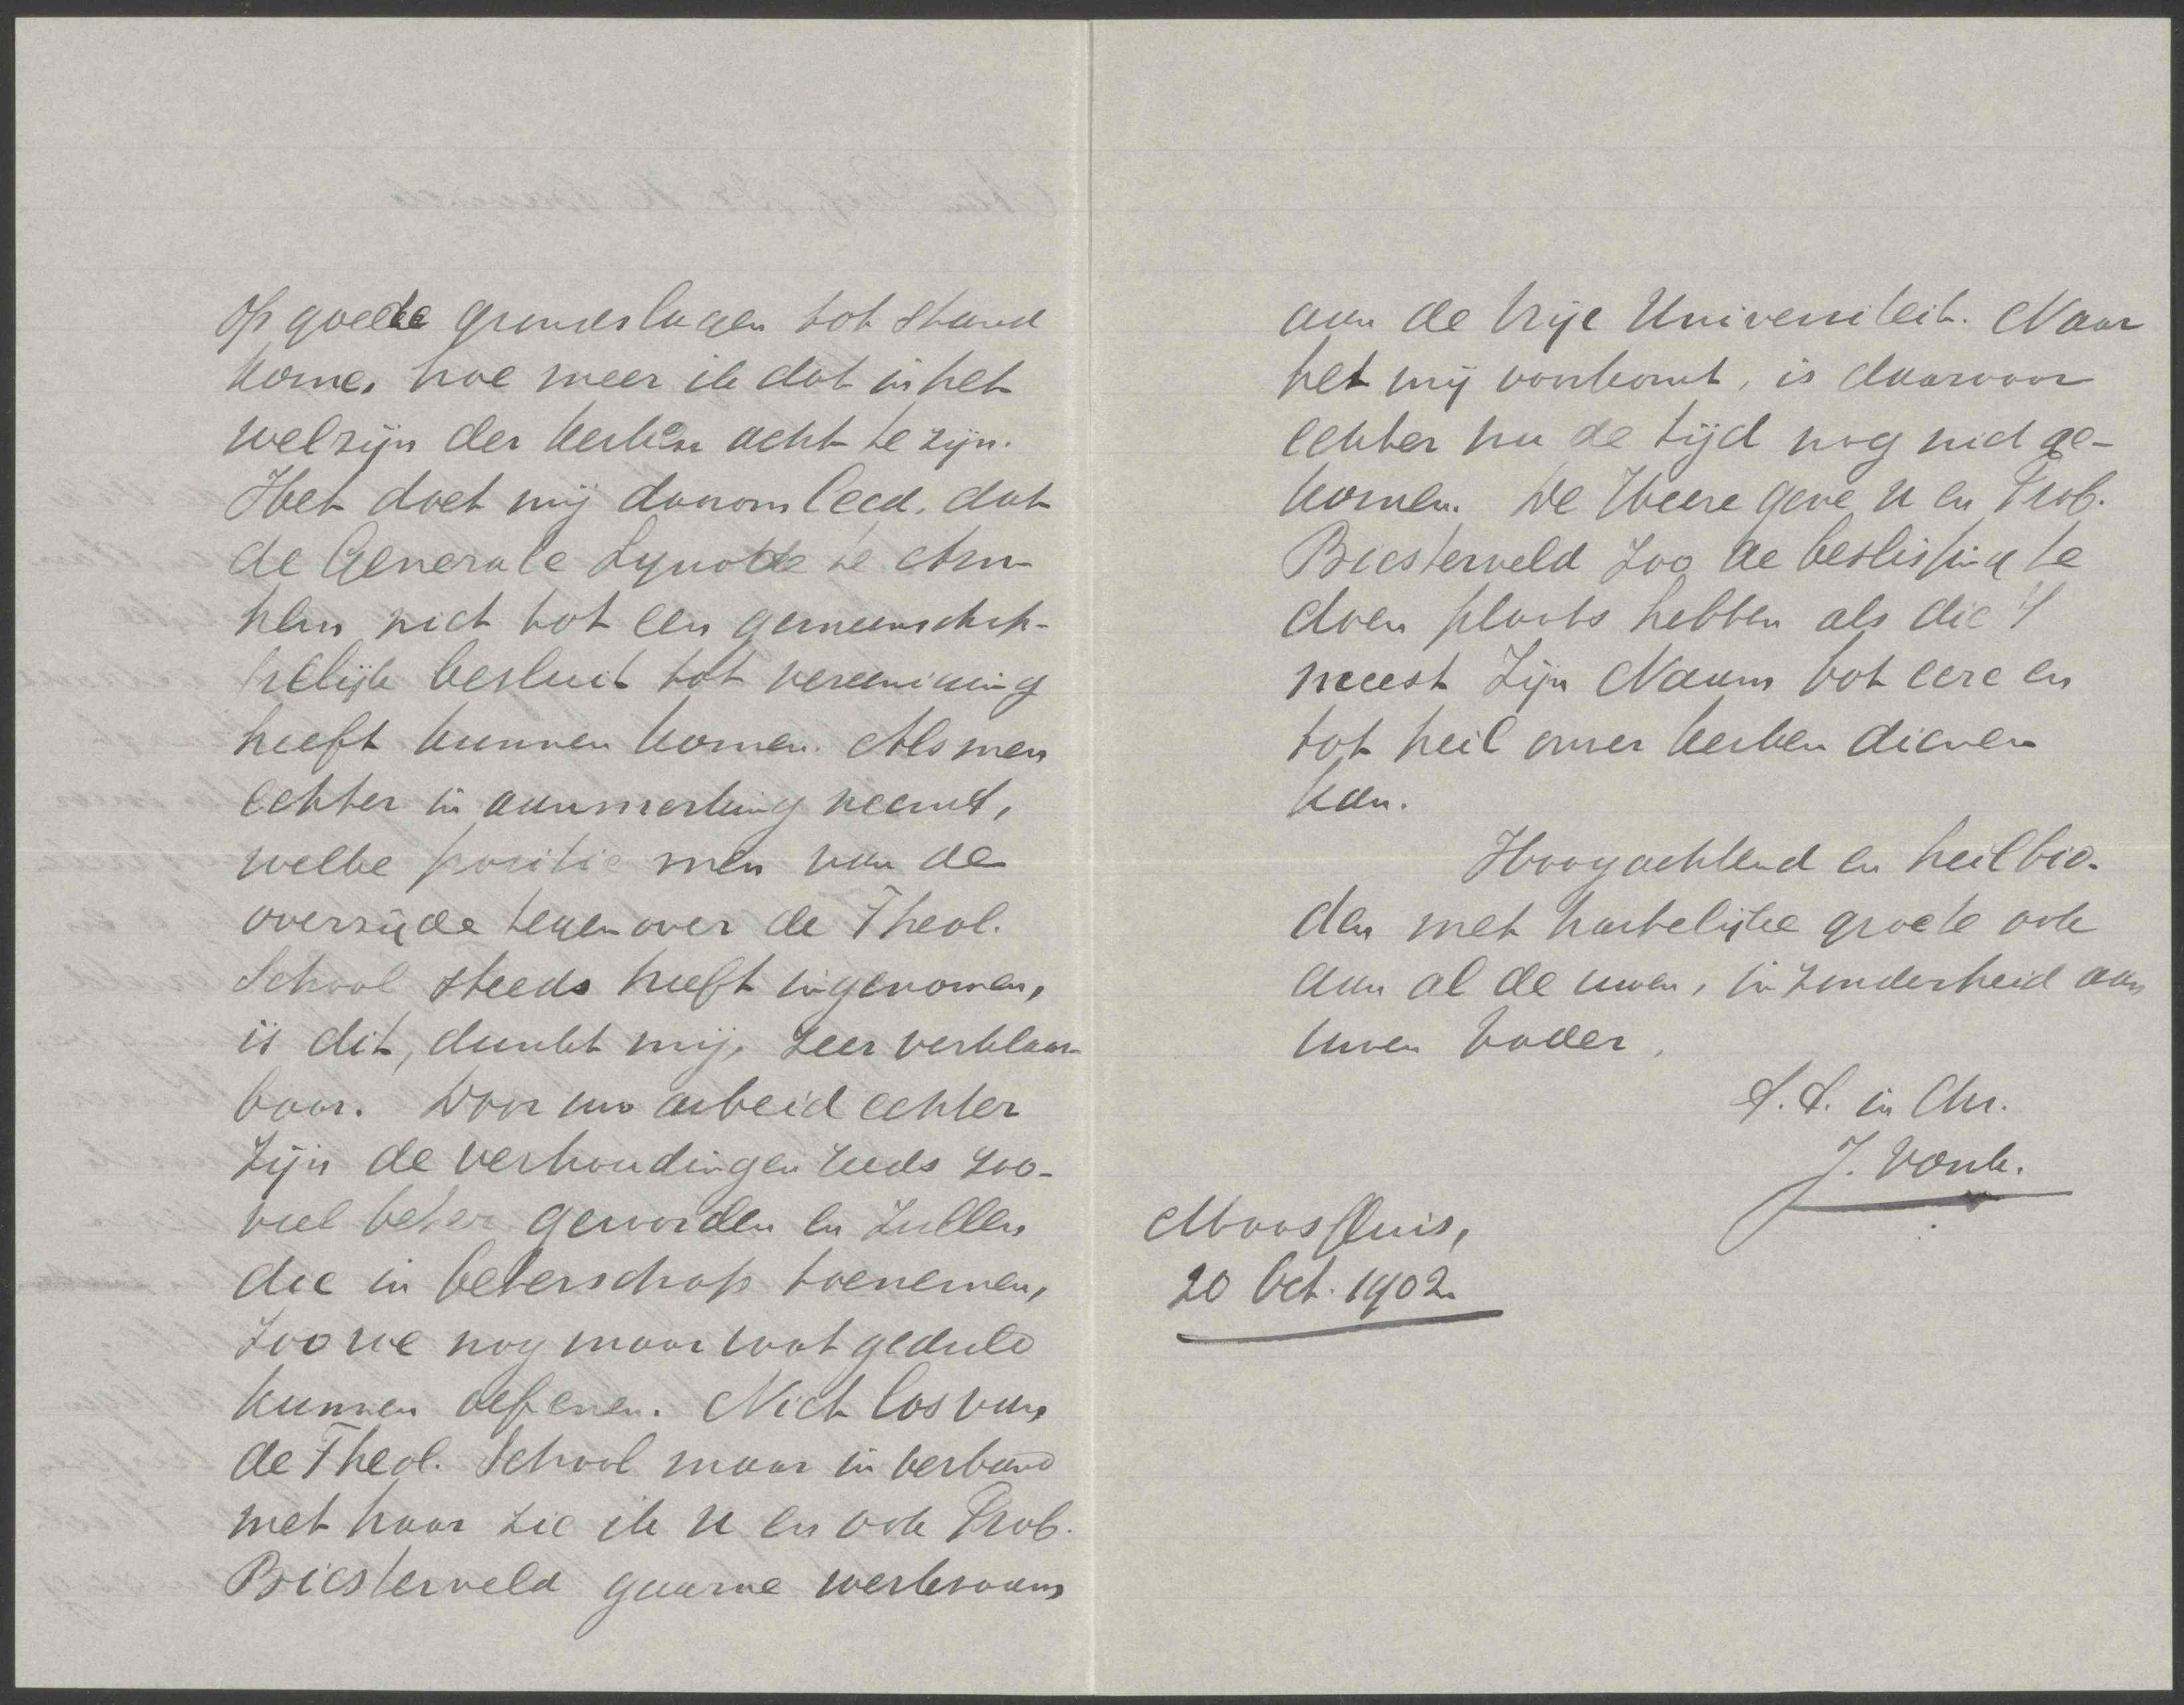 op goede grondslagen tot stand
kome, hoe meer ik dat in het
welzijn der kerken acht te zijn.
Het doet mij daarom leed, dat
de Generale Synode te Arn-
hem niet tot een gemeenschap-
pelijk besluit tot vereeniging
heeft kunnen komen. Als men
echter in aanmerking neemt,
welke positie men van de
overzijde tegenover de Theol.
School steeds heeft ingenomen,
is dit, dunkt mij, zeer verklaar-
baar. Door uw arbeid echter
zijn de verhoudingen reeds zoo-
veel beter geworden en zullen
die in beterschap toenemen,
zoo we nog maar wat geduld
kunnen oefenen. Niet los van
de Theol. School maar in verband
met haar zie ik U en ook Prof.
Biesterveld gaarne werkzaam
aan de Vrije Universiteit. Naar
het mij voorkomt, is daarvoor
echter nu de tijd nog niet ge-
komen. De Heere geve U en Prof.
Biesterveld zoo de beslissing te
doen plaats hebben als die 't
meest Zijn Naam tot eere en
tot heil onzer kerken dienen
kan.
Hoogachtend en heilbie-
den met hartelijke groete ook
aan al de uwen, in zonderheid aan
uwen vader,
t.t. in Chr.
J. Vonk.
Maassluis,
20 Oct. 1902